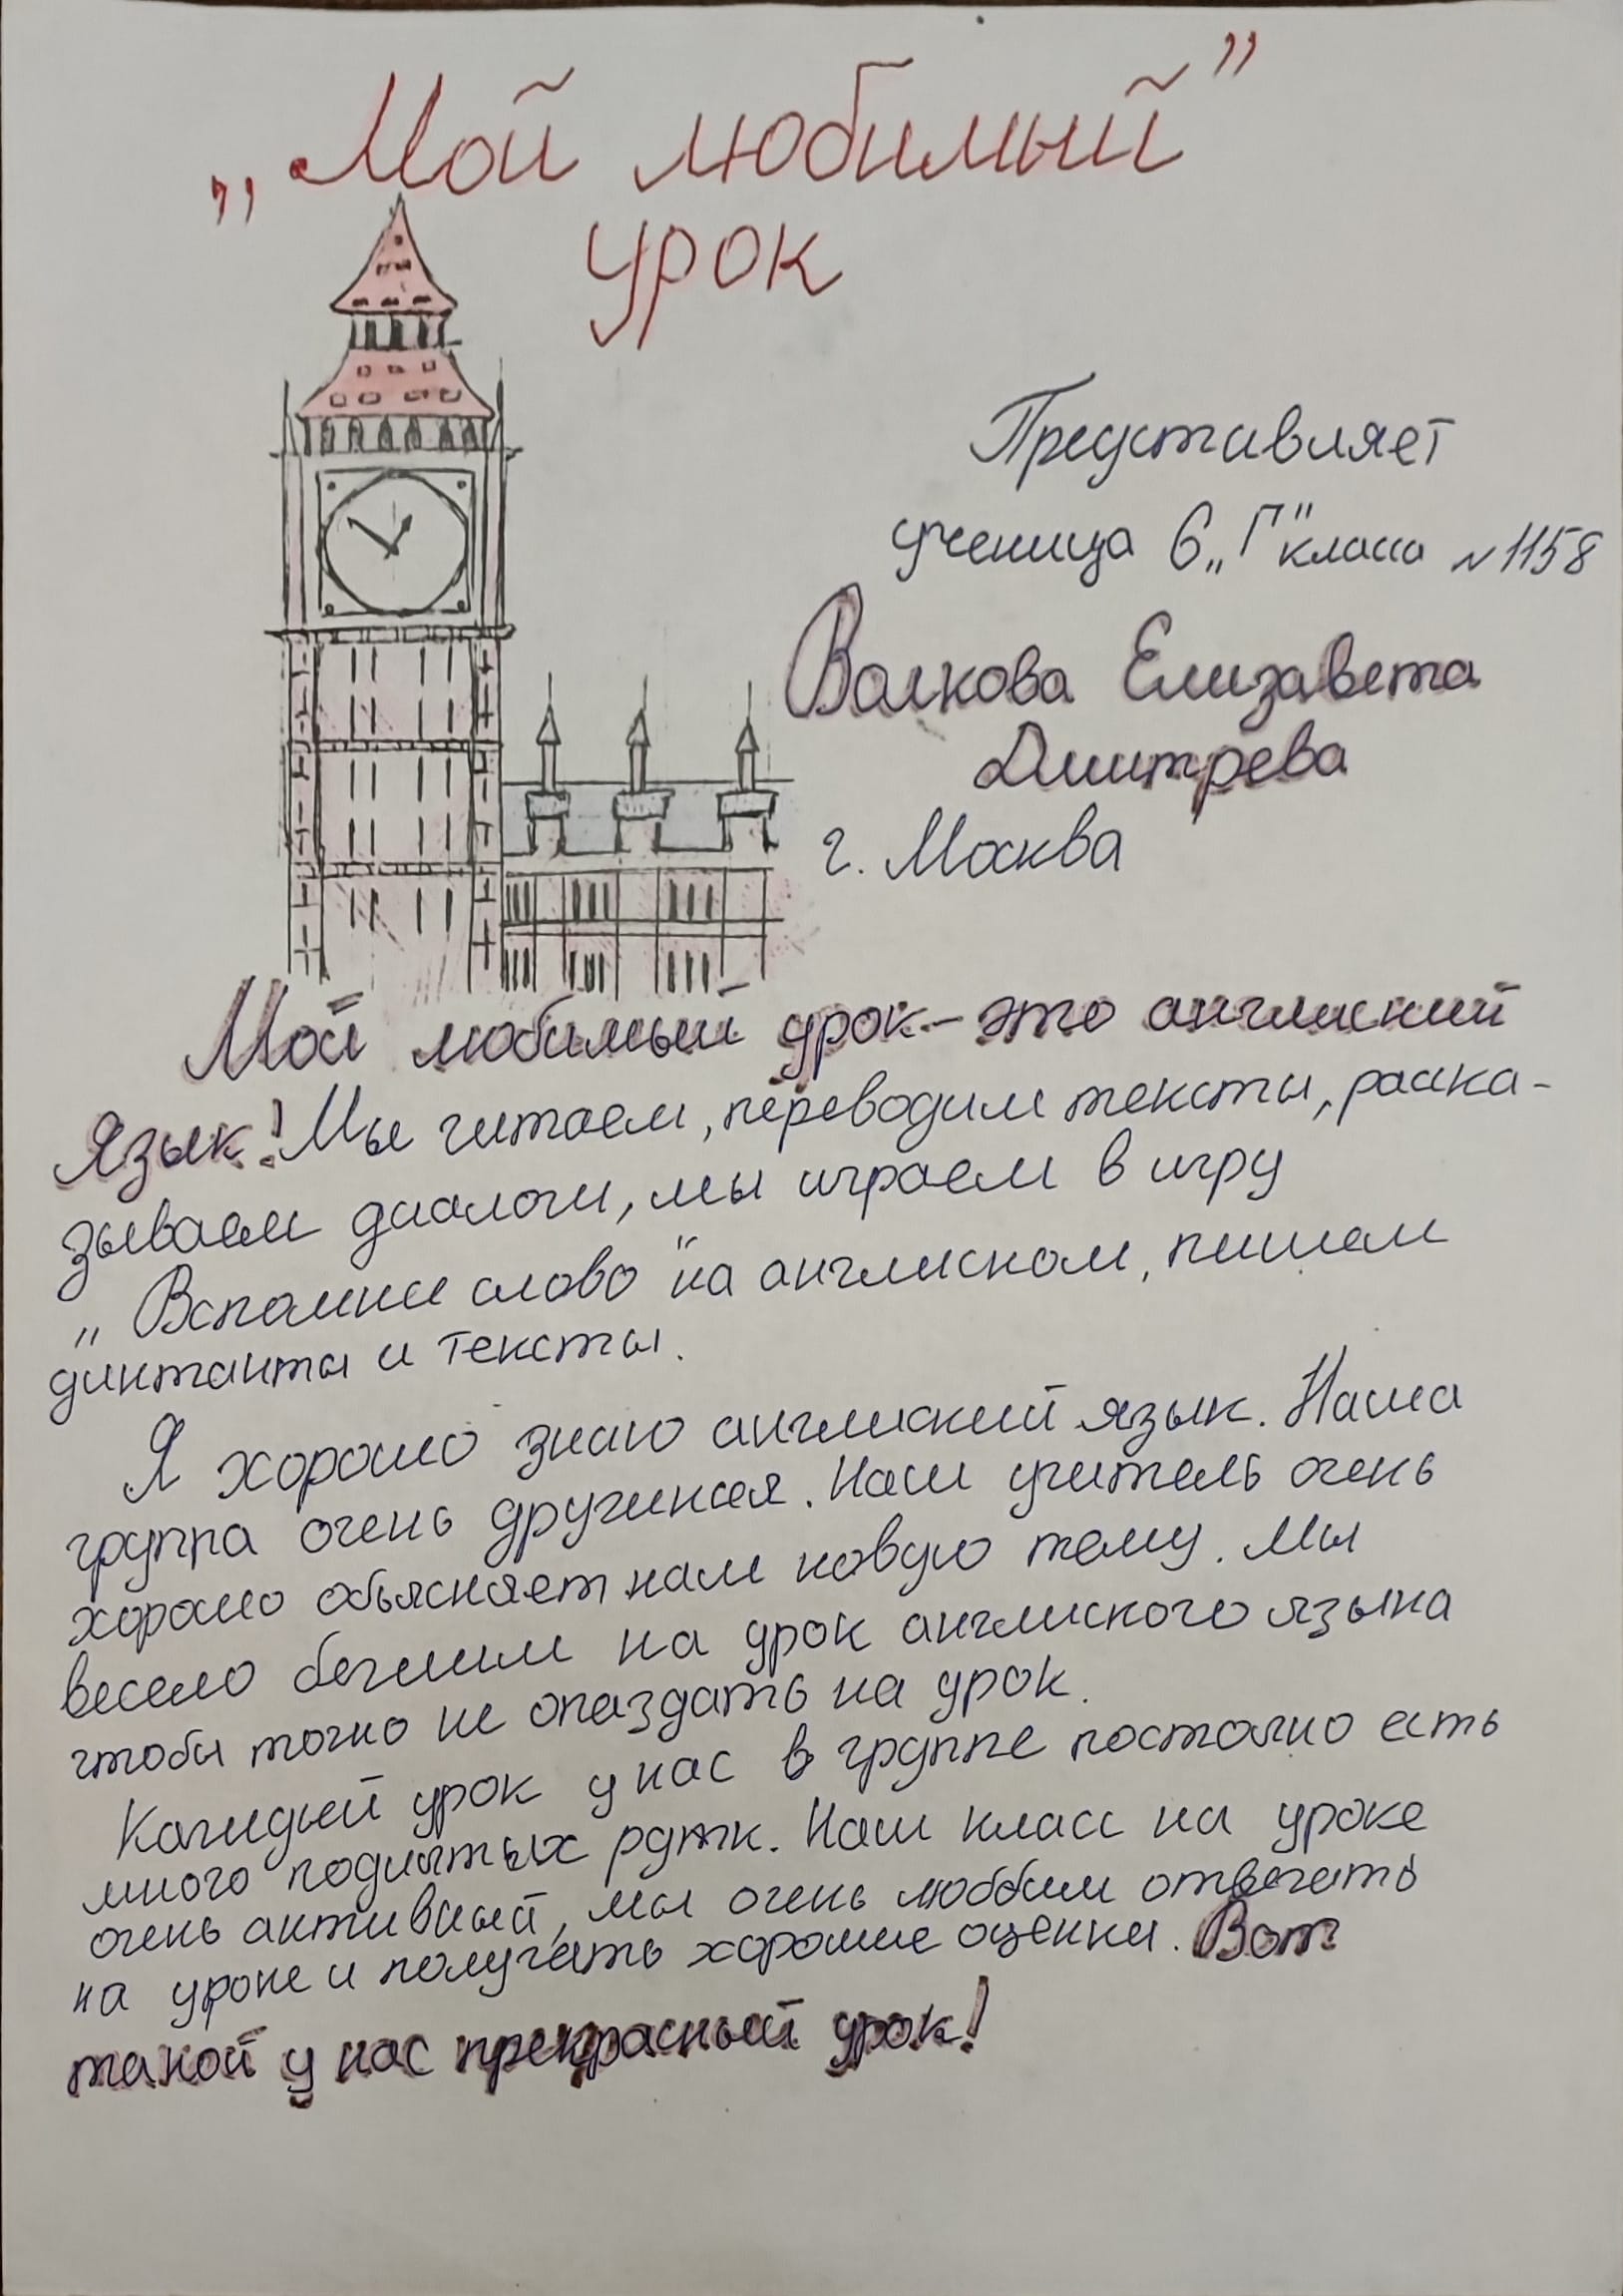 „Мой любимый"
урок
Представляет
ученица 6 „Г" класса №1158
Волкова Елизавета
Дмитрева
г. Москва
Мой любимый урок - это английский
язык! Мы читаем, переводим тексты, расска-
зываем диалоги, мы играем в игру
„Вспомни слово" на английском, пишем
диктанты и тексты.
Я хорошо знаю английский язык. Наша
группа очень дружная. Наш учитель очень
хорошо объясняет нам новую тему. Мы
весело бежим на урок английского языка
чтобы точно не опаздать на урок.
Каждый урок у нас в группе постояно есть
много поднятых рук. Наш класс на уроке
очень активный, мы очень любим отвечать
на уроке и получать хорошие оценки. Вот
такой у нас прекрасный урок!